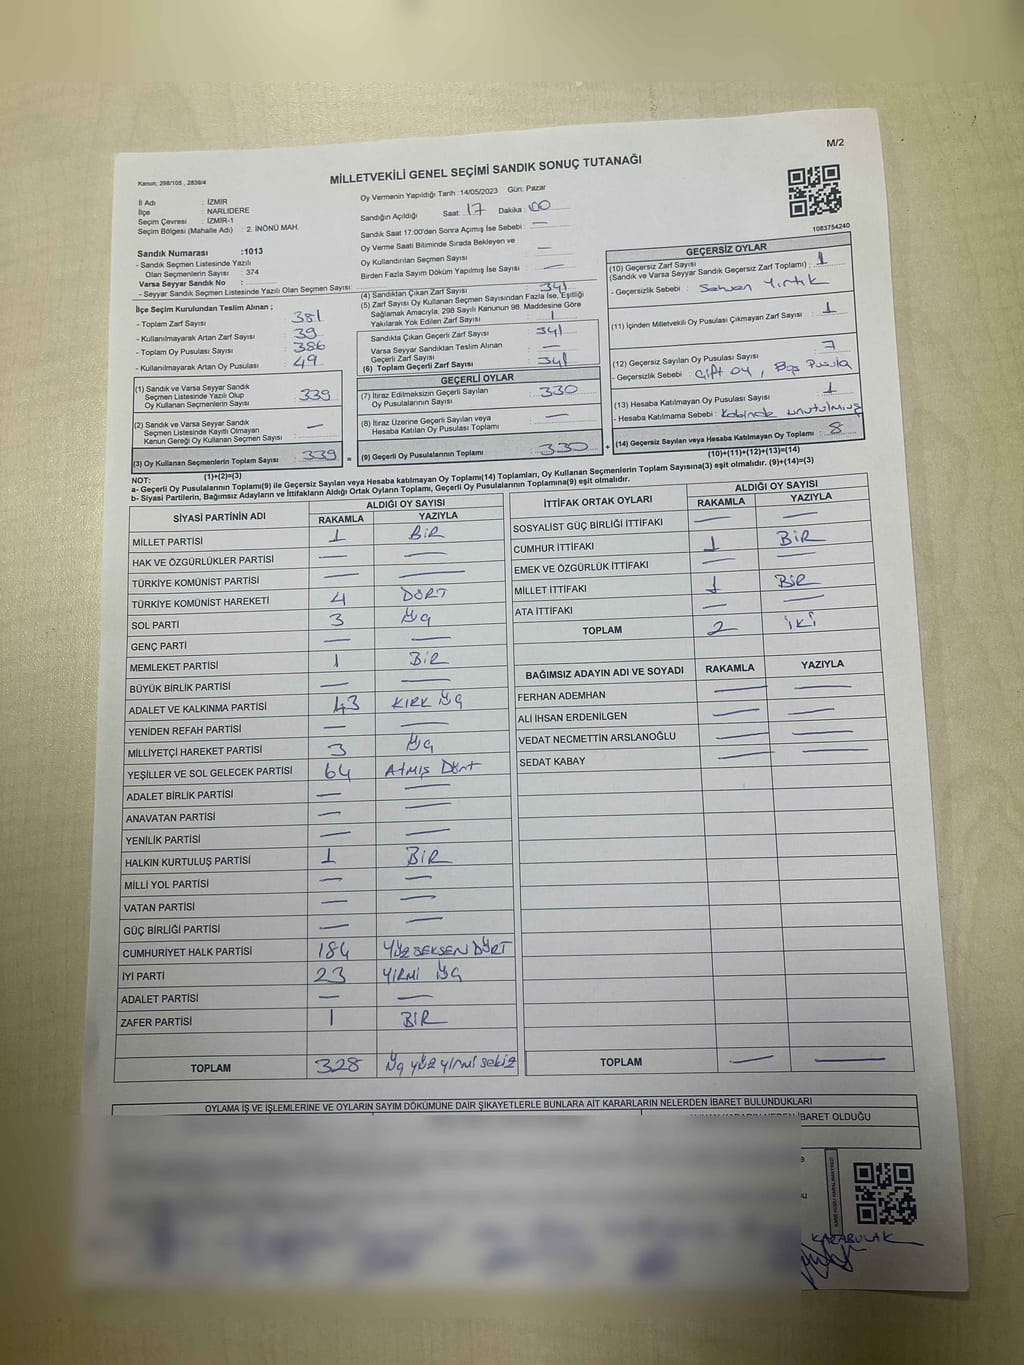 M/2
Kanun; 298/105 , 2839/4
MİLLETVEKİLİ GENEL SEÇİMİ SANDIK SONUÇ TUTANAĞI
İl Adı : İZMİR
İlçe : NARLIDERE
Seçim Çevresi : İZMİR-1
Seçim Bölgesi (Mahalle Adı) : 2. İNÖNÜ MAH.
Sandık Numarası :1013
- Sandık Seçmen Listesinde Yazılı
Olan Seçmenlerin Sayısı : 374
Varsa Seyyar Sandık No :
- Seyyar Sandık Seçmen Listesinde Yazılı Olan Seçmen Sayısı:
Oy Vermenin Yapıldığı Tarih :14/05/2023 Gün: Pazar
Sandığın Açıldığı Saat: 17 Dakika : 00
Sandık Saat 17:00'den Sonra Açımış İse Sebebi : —
Oy Verme Saati Bitiminde Sırada Bekleyen ve
Oy Kullandırılan Seçmen Sayısı : —
Birden Fazla Sayım Döküm Yapılmış İse Sayısı : —
1083754240
İlçe Seçim Kurulundan Teslim Alınan ;
- Toplam Zarf Sayısı : 381
- Kullanılmayarak Artan Zarf Sayısı : 39
- Toplam Oy Pusulası Sayısı : 386
- Kullanılmayarak Artan Oy Pusulası : 49
(1) Sandık ve Varsa Seyyar Sandık
Seçmen Listesinde Yazılı Olup
Oy Kullanan Seçmenlerin Sayısı : 339
(2) Sandık ve Varsa Seyyar Sandık
Seçmen Listesinde Kayıtlı Olmayan
Kanun Gereği Oy Kullanan Seçmen Sayısı : —
(3) Oy Kullanan Seçmenlerin Toplam Sayısı : 339 =
(1)+(2)=(3)
(4) Sandıktan Çıkan Zarf Sayısı : 341
(5) Zarf Sayısı Oy Kullanan Seçmen Sayısından Fazla İse, Eşitliği
Sağlamak Amacıyla; 298 Sayılı Kanunun 98. Maddesine Göre
Yakılarak Yok Edilen Zarf Sayısı :
Sandıkta Çıkan Geçerli Zarf Sayısı : 341
Varsa Seyyar Sandıktan Teslim Alınan
Geçerli Zarf Sayısı : —
(6) Toplam Geçerli Zarf Sayısı : 341
GEÇERLİ OYLAR
(7) İtiraz Edilmeksizin Geçerli Sayılan
Oy Pusulalarının Sayısı : 330
(8) İtiraz Üzerine Geçerli Sayılan veya
Hesaba Katılan Oy Pusulası Toplamı : —
(9) Geçerli Oy Pusulalarının Toplamı : 330 +
GEÇERSİZ OYLAR
(10) Geçersiz Zarf Sayısı : 1
(Sandık ve Varsa Seyyar Sandık Geçersiz Zarf Toplamı)
- Geçersizlik Sebebi : Sehven Yırtık
(11) İçinden Milletvekili Oy Pusulası Çıkmayan Zarf Sayısı : 1
(12) Geçersiz Sayılan Oy Pusulası Sayısı : 7
- Geçersizlik Sebebi : Çift oy , Boş Pusula
(13) Hesaba Katılmayan Oy Pusulası Sayısı : 1
- Hesaba Katılmama Sebebi : Kabinde unutulmuş
(14) Geçersiz Sayılan veya Hesaba Katılmayan Oy Toplamı : 8
(10)+(11)+(12)+(13)=(14)
NOT:
a- Geçerli Oy Pusulalarının Toplamı(9) ile Geçersiz Sayılan veya Hesaba katılmayan Oy Toplamı(14) Toplamları, Oy Kullanan Seçmenlerin Toplam Sayısına(3) eşit olmalıdır. (9)+(14)=(3)
b- Siyasi Partilerin, Bağımsız Adayların ve İttifakların Aldığı Ortak Oyların Toplamı, Geçerli Oy Pusulalarının Toplamına(9) eşit olmalıdır.
SİYASİ PARTİNİN ADI ALDIĞI OY SAYISI
RAKAMLA YAZIYLA
MİLLET PARTİSİ 1 BİR
HAK VE ÖZGÜRLÜKLER PARTİSİ — —
TÜRKİYE KOMÜNİST PARTİSİ — —
TÜRKİYE KOMÜNİST HAREKETİ 4 DÖRT
SOL PARTİ 3 Üç
GENÇ PARTİ — —
MEMLEKET PARTİSİ 1 BİR
BÜYÜK BİRLİK PARTİSİ — —
ADALET VE KALKINMA PARTİSİ 43 KIRK Üç
YENİDEN REFAH PARTİSİ — —
MİLLİYETÇİ HAREKET PARTİSİ 3 Üç
YEŞİLLER VE SOL GELECEK PARTİSİ 64 Atmış Dört
ADALET BİRLİK PARTİSİ — —
ANAVATAN PARTİSİ — —
YENİLİK PARTİSİ — —
HALKIN KURTULUŞ PARTİSİ 1 BİR
MİLLİ YOL PARTİSİ — —
VATAN PARTİSİ — —
GÜÇ BİRLİĞİ PARTİSİ — —
CUMHURİYET HALK PARTİSİ 184 YÜZ SEKSEN DÖRT
İYİ PARTİ 23 YİRMİ Üç
ADALET PARTİSİ — —
ZAFER PARTİSİ 1 BİR
TOPLAM 328 Üç yüz yirmi sekiz
İTTİFAK ORTAK OYLARI ALDIĞI OY SAYISI
RAKAMLA YAZIYLA
SOSYALİST GÜÇ BİRLİĞİ İTTİFAKI — —
CUMHUR İTTİFAKI 1 BİR
EMEK VE ÖZGÜRLÜK İTTİFAKI — —
MİLLET İTTİFAKI 1 BİR
ATA İTTİFAKI — —
TOPLAM 2 İKİ
BAĞIMSIZ ADAYIN ADI VE SOYADI RAKAMLA YAZIYLA
FERHAN ADEMHAN — —
ALİ İHSAN ERDENİLGEN — —
VEDAT NECMETTİN ARSLANOĞLU — —
SEDAT KABAY — —
TOPLAM — —
OYLAMA İŞ VE İŞLEMLERİNE VE OYLARIN SAYIM DÖKÜMÜNE DAİR ŞİKAYETLERLE BUNLARA AİT KARARLARIN NELERDEN İBARET BULUNDUKLARI
İBARET OLDUĞU
KARABULAK